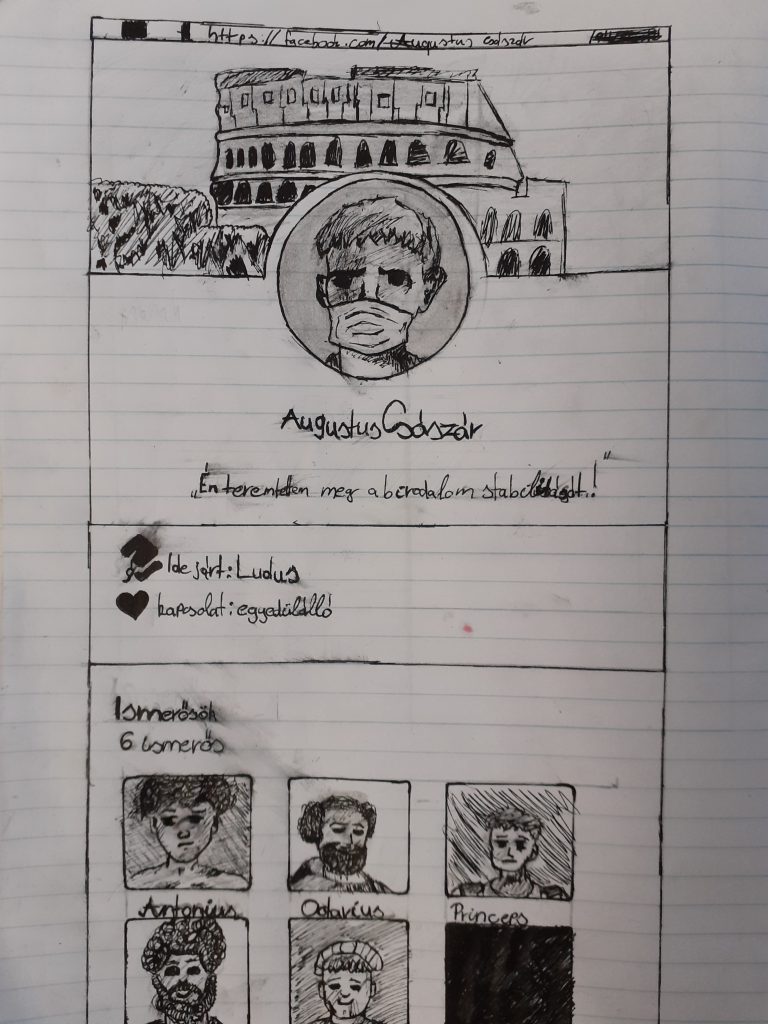 https://facebook.com/Augustus Császár
Augustus Császár
„Én teremtettem meg a birodalom stabilitását!"
Ide járt: Ludus
kapcsolat: egyedülálló
Ismerősök
6 ismerős
Antonius
Octavius
Princeps